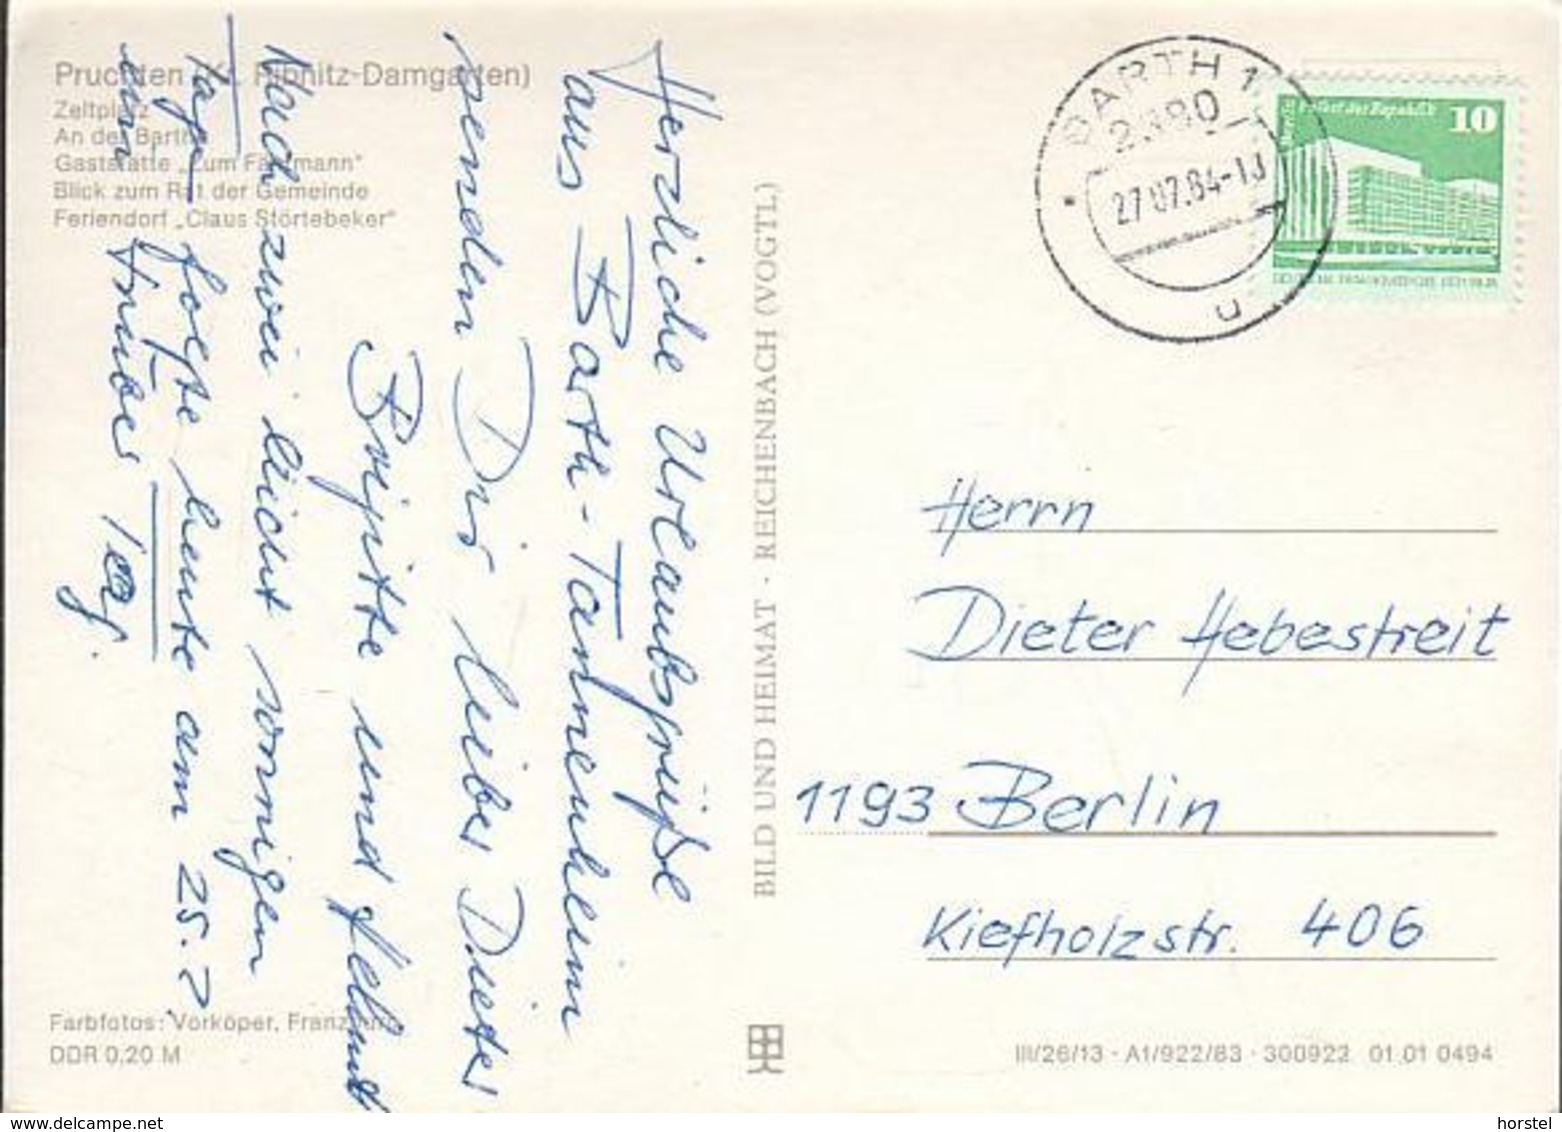 Pruchten (Kr. Ribnitz-Damgarten)
Zeltplatz
An der Barthe
Gaststätte „Zum Fährmann"
Blick zum Rat der Gemeinde
Feriendorf „Claus Störtebeker"
Herzliche Urlaubsgrüße
aus Barth-Tannenheim
senden Dir lieber Dieter
Brigitte und Helmut
Nach zwei leicht sonnigen
Tagen folgte heute am 25.7.
ein trüber Tag.
Farbfotos: Vorköper, Franzburg
DDR 0,20 M
BILD UND HEIMAT · REICHENBACH (VOGTL)
BARTH 1
2380
27.07.84-13
u
10
Palast der Republik
Herrn
Dieter Hebestreit
1193 Berlin
Kiefholzstr. 406
III/26/13 · A1/922/83 · 300922 01 01 0494
www.delcampe.net
horstel